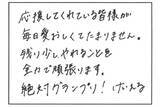 応援してくれている皆様が
毎日愛おしくてたまりません。
残り少しやれることを
全力で頑張ります。
絶対グランプリ! けいえる